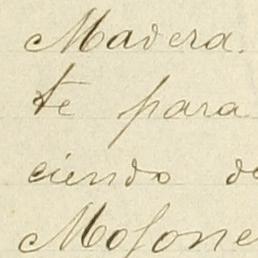 Madera.
te para
ciendo de
Mosone